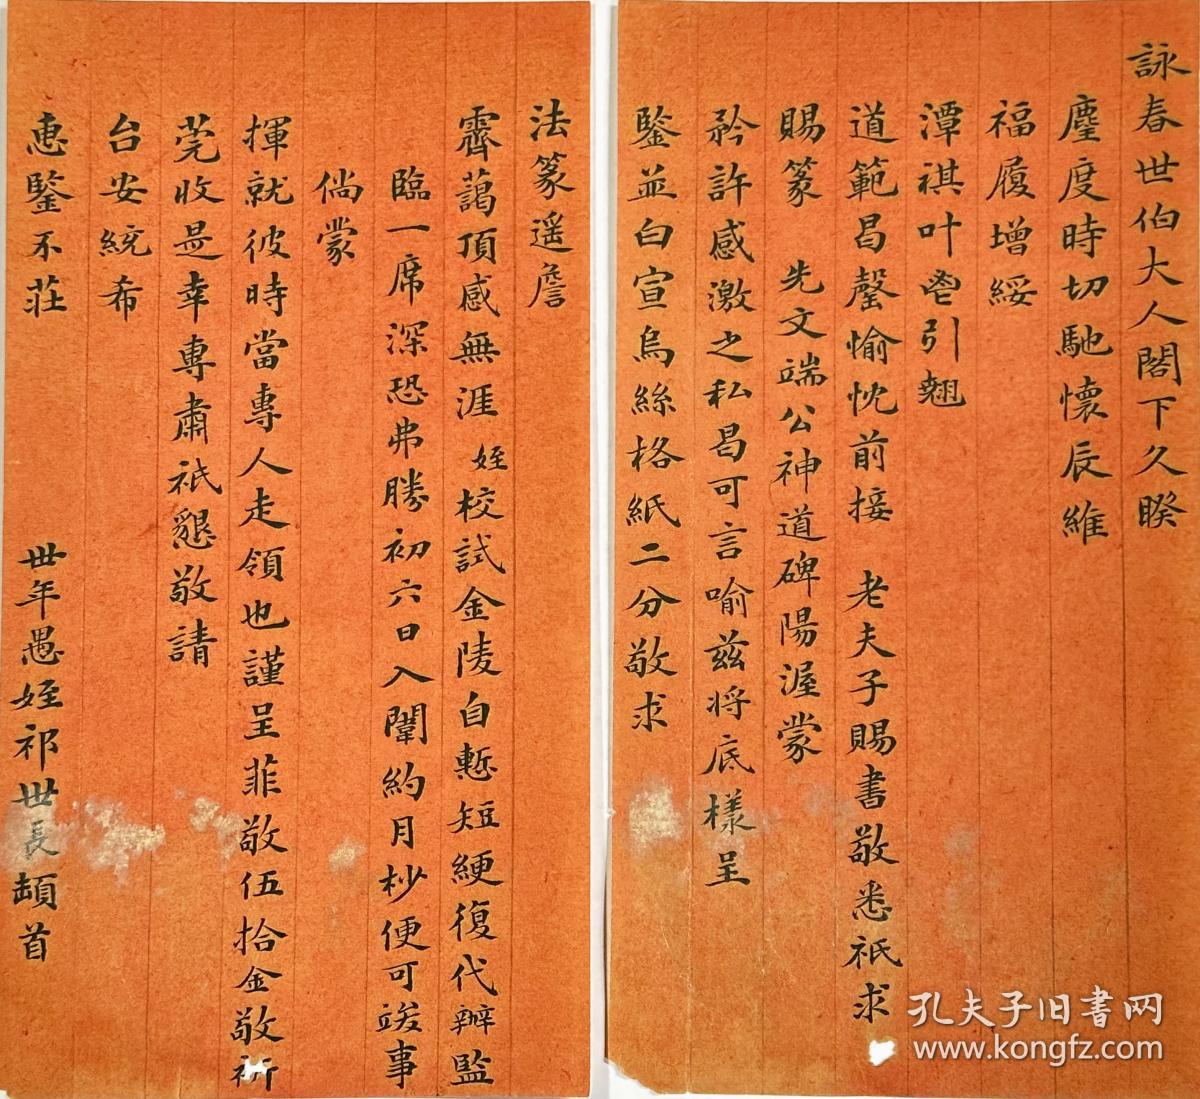 詠春世伯大人閣下久暌
塵度時切馳懷辰維
福履增綏
潭祺叶鬯引翹
道範曷罄愉忱前接 老夫子賜書敬悉祇求
賜篆 先文端公神道碑陽渥蒙
矜許感激之私曷可言喻茲将底樣呈
鑒並白宣烏絲格紙二分敬求
法篆遥詹
霽藹頂感無涯姪校試金陵自慙短綆復代辦監
臨一席深恐弗勝初六日入闈約月杪便可竣事
倘蒙
揮就彼時當專人走領也謹呈菲敬伍拾金敬祈
莞收是幸專肅祇懇敬請
台安統希
惠鑒不莊
世年愚姪祁世長頓首
孔夫子旧书网
www.kongfz.com